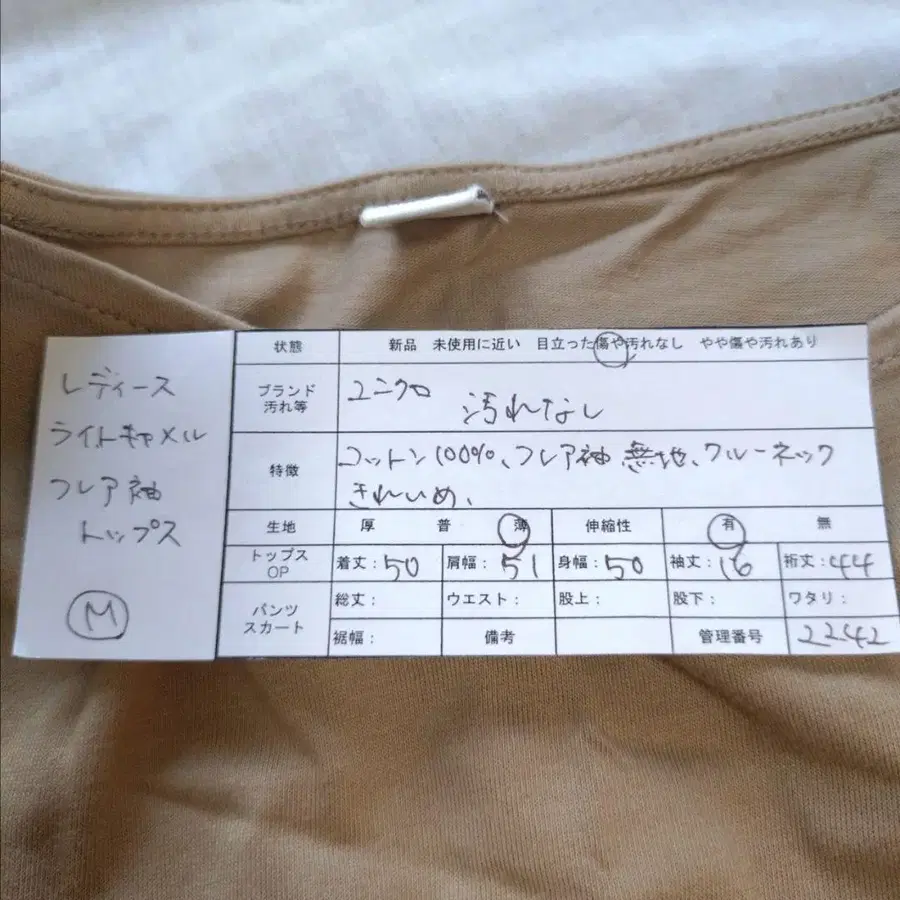 レディース
ライトキャメル
フレア袖
トップス
M
状態 新品 未使用に近い 目立った傷や汚れなし やや傷や汚れあり
ブランド 汚れ等 ユニクロ 汚れなし
特徴 コットン100%、フレア袖 無地、クルーネック
きれいめ、
生地 厚 普 薄 伸縮性 有 無
トップス OP 着丈:50 肩幅:51 身幅:50 袖丈:16 裄丈:44
パンツ スカート 総丈: ウエスト: 股上: 股下: ワタリ:
裾幅: 備考 管理番号 2242